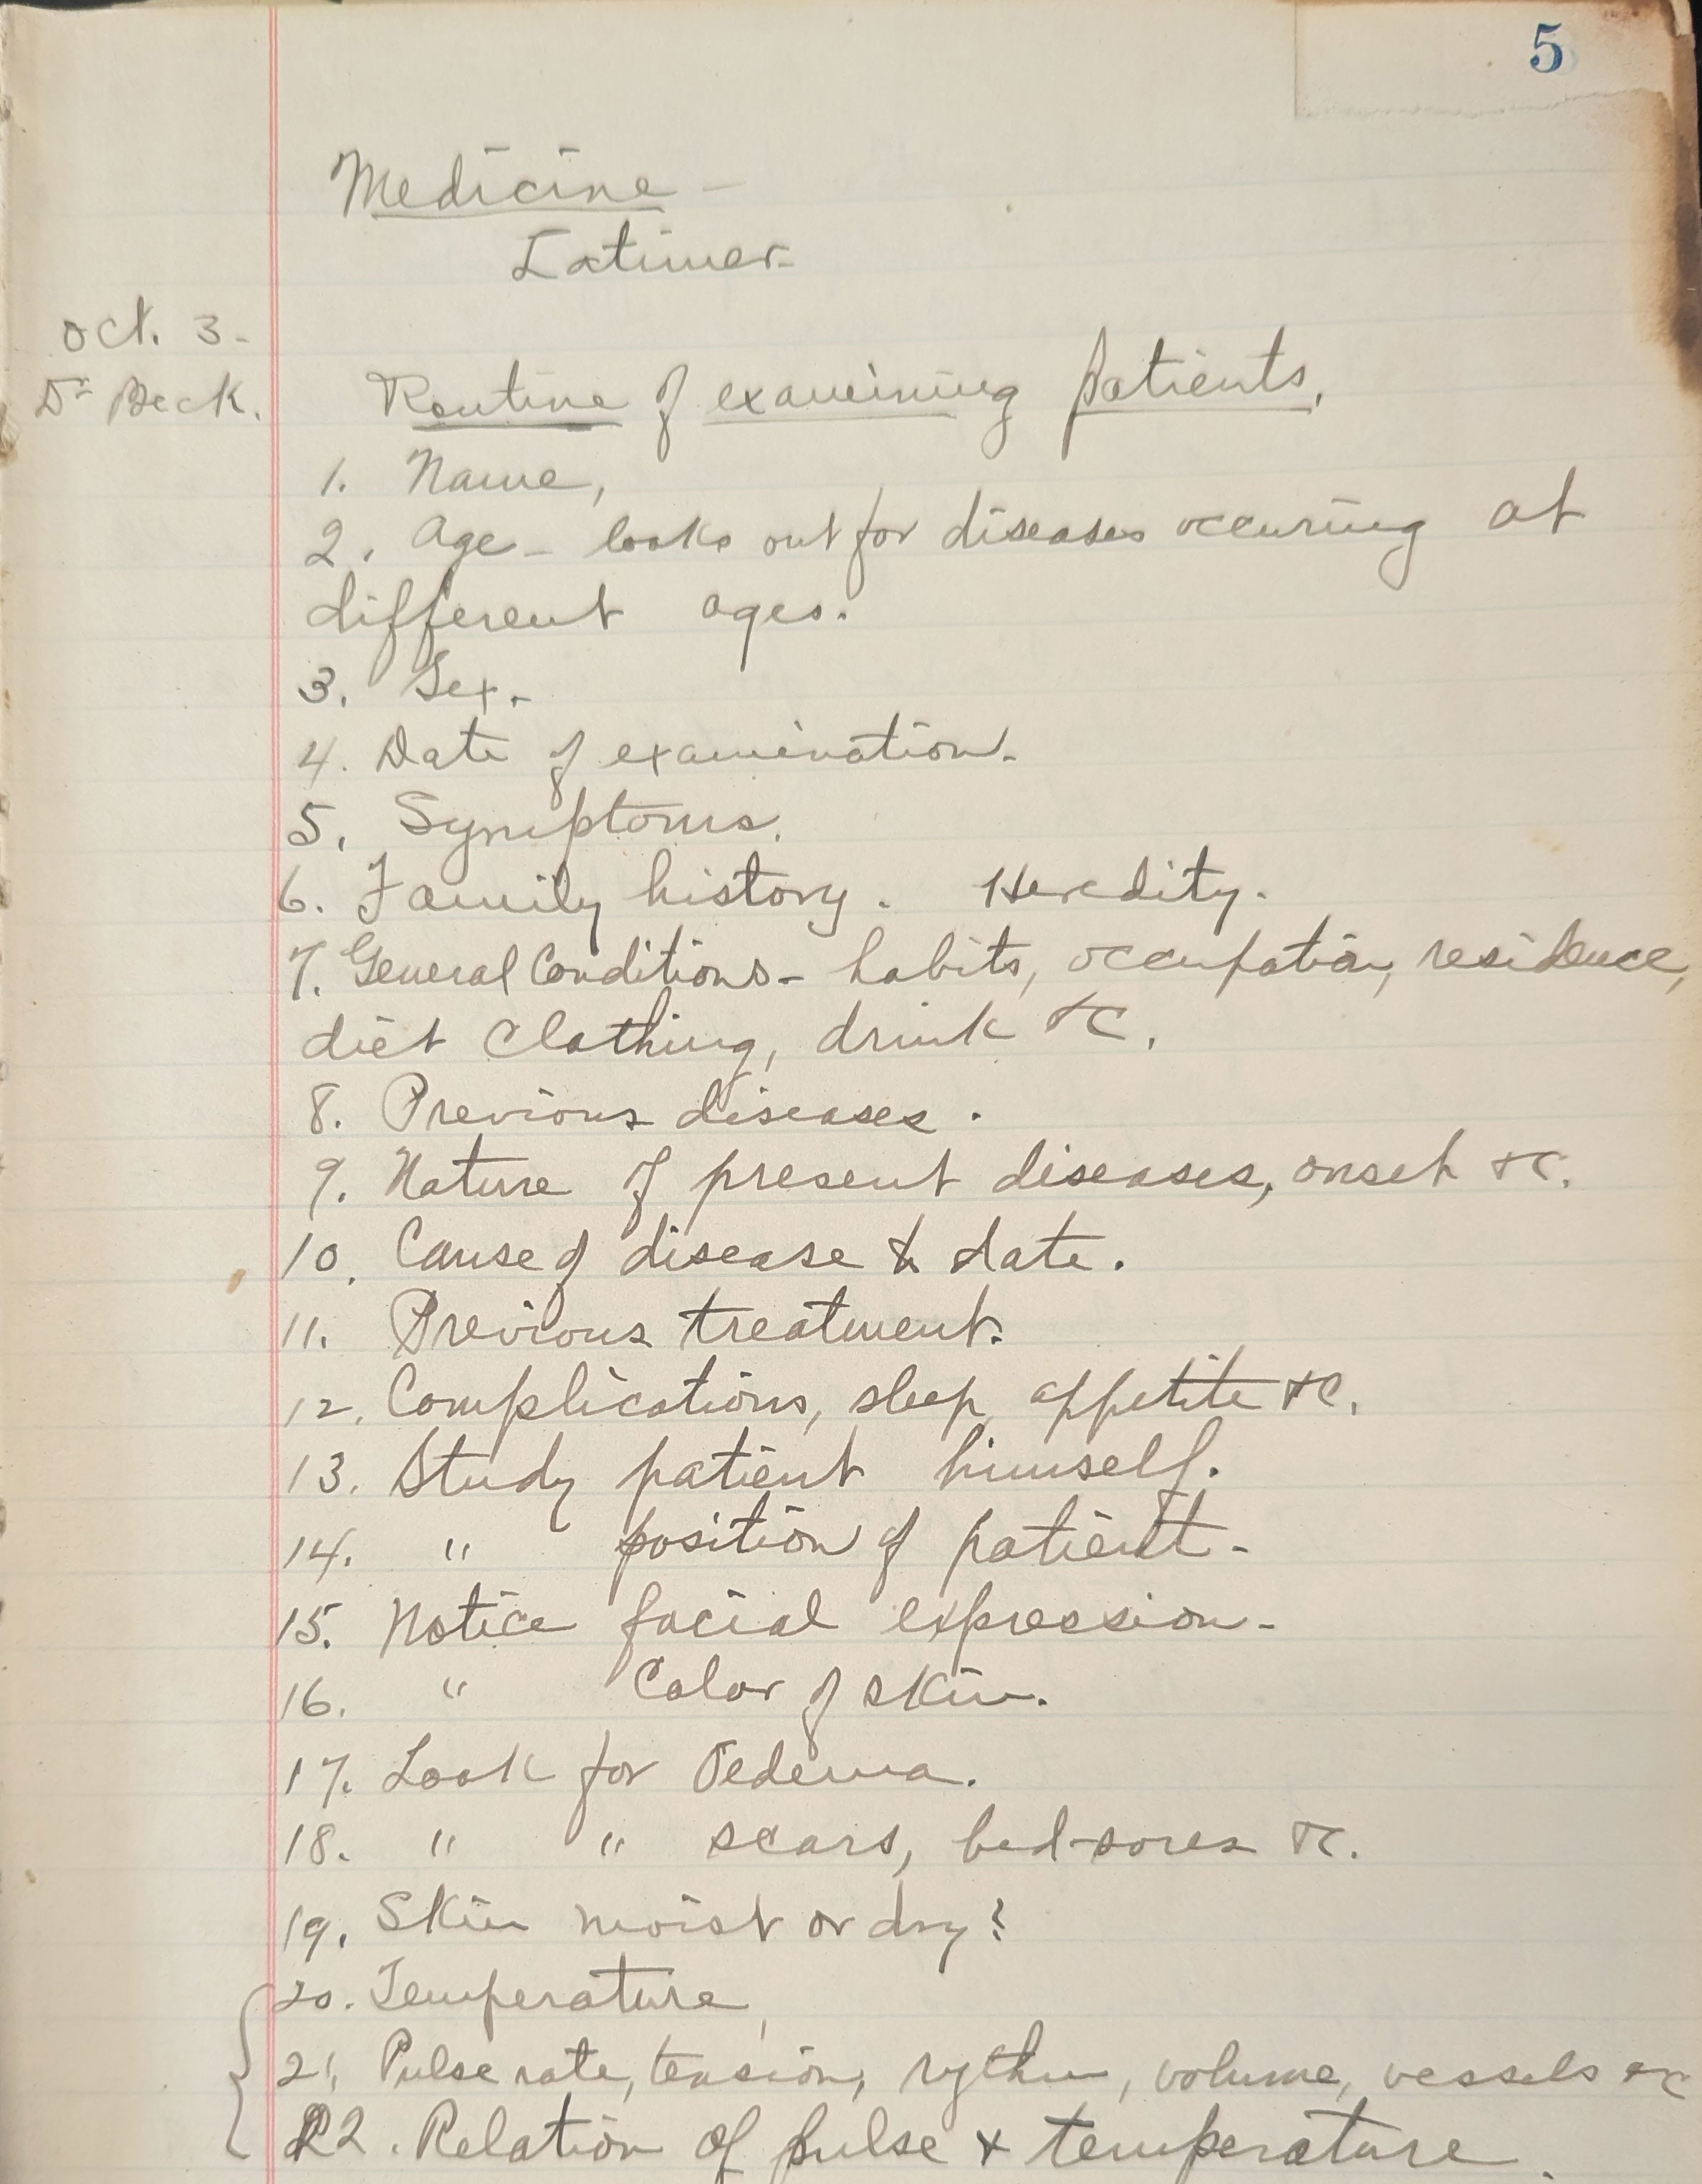 5
Medicine -
Latimer-
Oct. 3-
Dr Beck.
Routine of examining patients.
1. Name,
2. Age - looks out for diseases occuring at
different ages.
3. Sex.-
4. Date of examination.-
5. Symptoms.
6. Family history. Heredity.
7. General Conditions- habits, occupation, residence,
diet clothing, drink &c.
8. Previous diseases.
9. Nature of present diseases, onset &c.
10. Cause of disease & date.
11. Previous treatment.
12. Complications, sleep, appetite &c.
13. Study patient himself.
14. " position of patient-
15. Notice facial expression-
16. " Color of skin.
17. Look for Oedema.
18. " " scars, bed-sores &c.
19. Skin moist or dry?
20. Temperature,
21. Pulse rate, tension, rythm, volume, vessels &c
22. Relation of pulse & temperature.